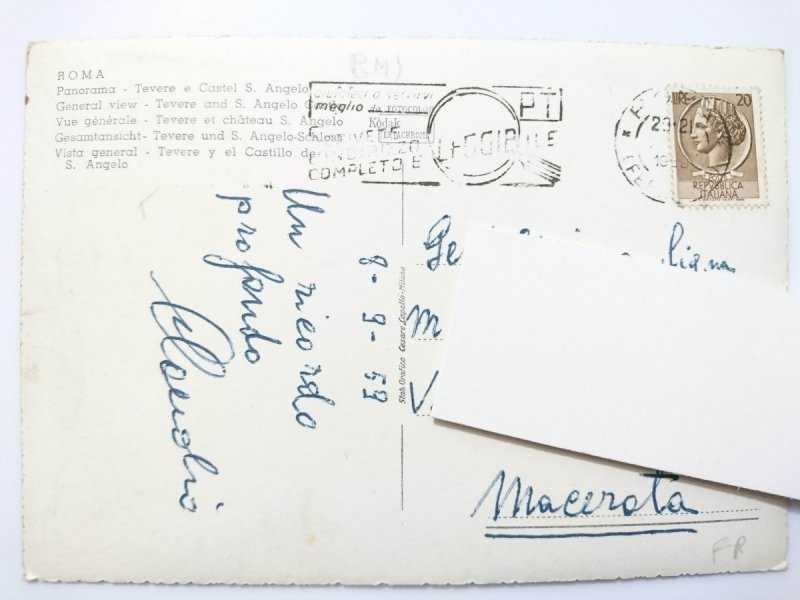 RM)
ROMA
Panorama - Tevere e Castel S. Angelo
General view - Tevere and S. Angelo
Vue générale - Tevere et château S. Angelo
Gesamtansicht- Tevere und S. Angelo-Schloss
Vista general - Tevere y el Castillo de
S. Angelo
meglio da FOTOCOLOR
Kodak
EKTACHROME
INDIRIZZO LEGGIBILE
COMPLETO E
PT
20
REPVBBLICA
ITALIANA
Un ricordo
profondo
Claudio
8-9-59
Stab. Grafico Cesare Capello-Milano
M
V
Macerata
FR